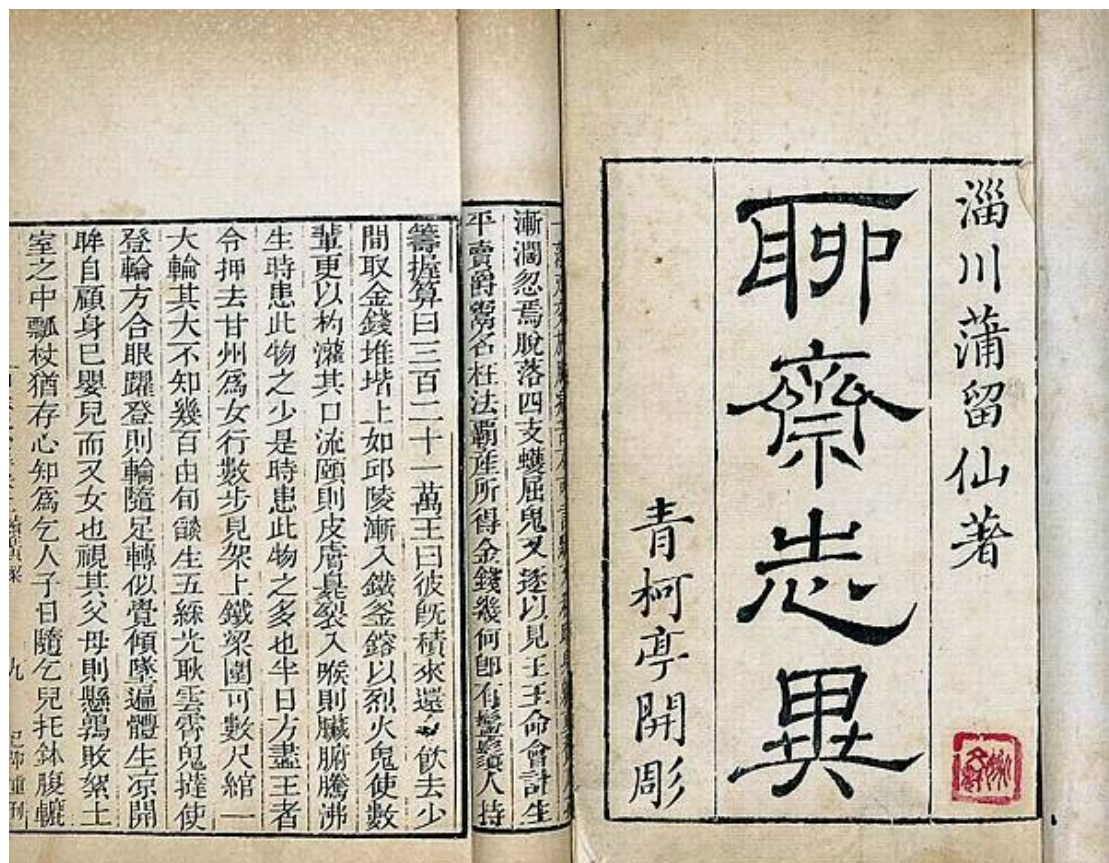 淄川蒲留仙著
聊齋志異
青柯亭開彫
漸漸忽焉脫落四支蠖屈鬼又逐以見王王命會計生
平賣爵鬻名枉法覇産所得金錢幾何即有鬡鬚人持
籌握算曰三百二十一萬王曰彼旣積來還令飲去少
間取金錢堆堦上如邱陵漸入鐵釜鎔以烈火鬼使數
輩更以杓灌其口流頤則皮膚臭裂入喉則臟腑騰沸
生時患此物之少是時患此物之多也半日方盡王者
令押去甘州爲女行數步見架上鐵梁圍可數尺綰一
大輪其大不知幾百由旬燄生五綵光耿雲霄鬼撻使
登輪方合眼躍登則輪隨足轉似覺傾墜遍體生凉開
眸自顧身巳嬰兒而又女也視其父母則懸鶉敗絮土
室之中瓢杖猶存心知爲乞人子日隨乞兒托鉢腹轆